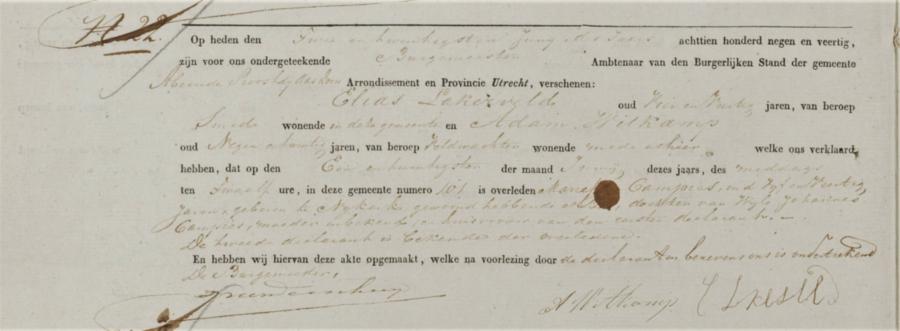 N 22.
Op heden den Twee en twintigsten Juny des Jaars achttien honderd negen en veertig,
zijn voor ons ondergeteekende Burgemeester Ambtenaar van den Burgerlijken Stand der gemeente
Abcoude Proostdy Arrondissement en Provincie Utrecht, verschenen:
Elias Lakerveld oud Vier en Veertig jaren, van beroep
Smid wonende in deze gemeente en Adam Witkamp
oud Negen en twintig jaren, van beroep Veldwachter wonende mede alhier welke ons verklaard
hebben, dat op den Een en twintigsten der maand Juny dezes jaars, des middags
ten Twaalf ure, in deze gemeente numero 101 is overleden Campies, oud Vyf en Veertig
Jaren, geboren te Nykerk gewoond hebbende dochter van Wyle Johannes
Campies, moeder onbekend, en huisvrouw van den eersten declarant. –
De tweede declarant is bekende der overledene.
En hebben wij hiervan deze akte opgemaakt, welke na voorlezing door de declaranten benevens ons is onderteekend
De Burgemeester,
A Witkamp